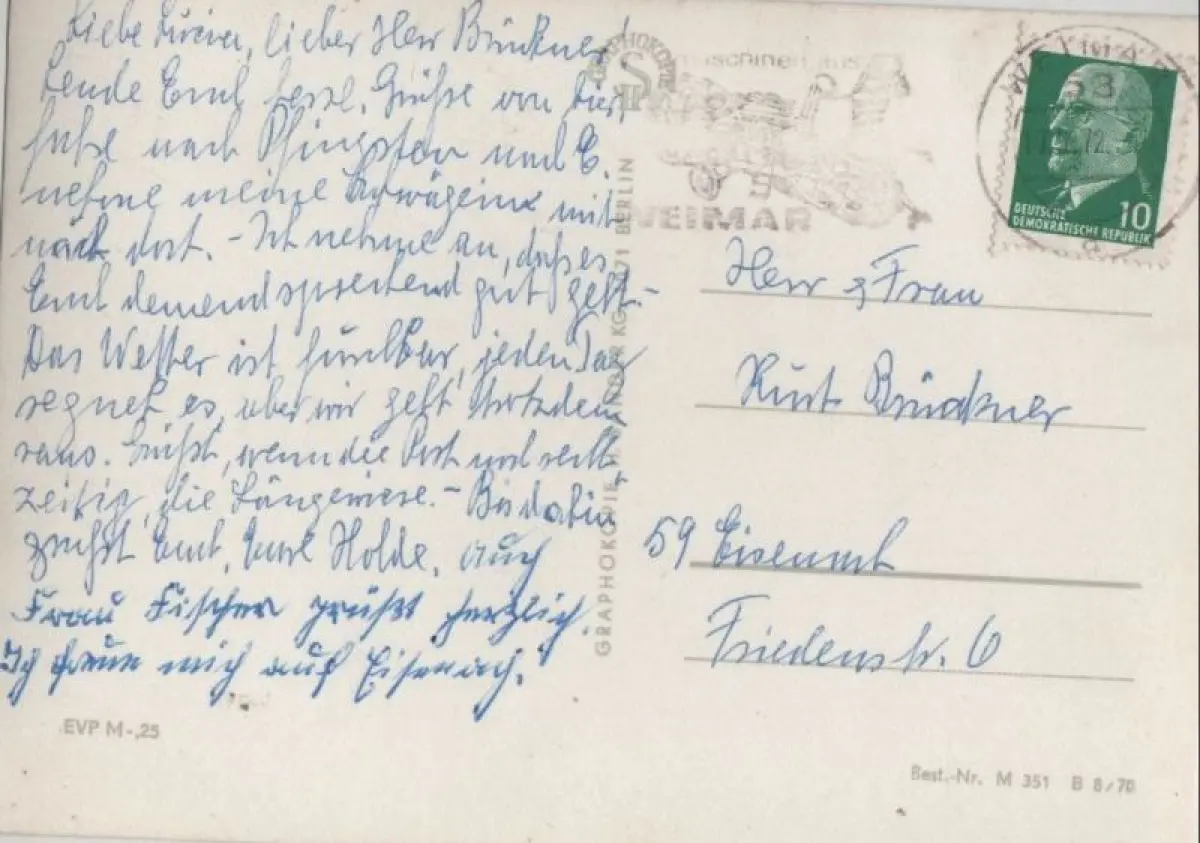 Liebe lieber Herr Bruckner
sende Euch herzl. Grüße von hier,
fahre nach Pfingsten nach E.
nehme meine Schwägerin mit
nach dort. - Ich nehme an, daß es
Euch dementsprechend gut geht -
Das Wetter ist furchtbar, jeden Tag
regnet es, aber wir geht trotzdem
raus. wenn die Post noch recht
zeitig, die - Bis dahin
grüßt Euch, Eure Holde. Auch
Frau Fischer grüßt herzlich
Ich freue mich auf Eisenach.
EVP M -,25
GRAPHOKOPIE
GRAPHOKOPIE H. KG, 1071 BERLIN
maschinen aus
WEIMAR
53
DEUTSCHE
DEMOKRATISCHE REPUBLIK
10
Herr & Frau
Kurt Brückner
59 Eisenach
Friedenstr. 6
Best.-Nr. M 351 B 8/70